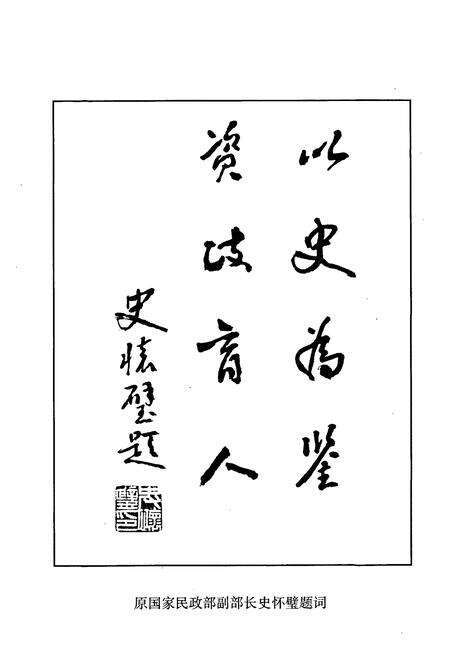 以史为鉴
资政育人
史怀璧题
原国家民政部副部长史怀璧题词